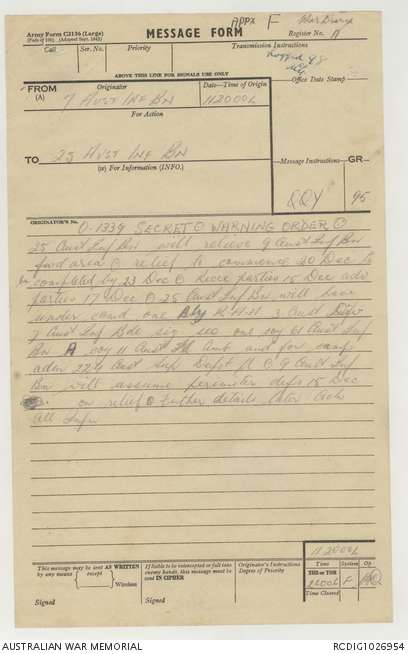 Appx F War Diary
Army Form C2136 (Large)
MESSAGE FORM
Register No. A
Call
Ser. No.
Priority
Transmission Instructions
Logged
ABOVE THIS LINE FOR SIGNALS USE ONLY
Office Date Stamp
FROM
(A)
Originator
Date—Time of Origin
7 AUST INF BN
112000L
For Action
TO
25 AUST INF BN
(w) For Information (INFO.)
Message Instructions
GR—
QQY
95
ORIGINATOR'S No.
O-1339 SECRET ⊙ WARNING ORDER ⊙
25 Aust Inf Bn will relieve 9 Aust Inf Bn
fwd area ⊙ relief to commence 20 Dec to
completed by 23 Dec ⊙ Recce parties 15 Dec adv
parties 17 Dec ⊙ 25 Aust Inf Bn will have
under comd one Bty 2 Aust
7 Aust Inf Bde sig sec one coy 61 Aust Inf
Bn A coy 11 Aust Fd Amb and for camp
adm Aust Sup Depot Pl ⊙ 9 Aust Inf
Bn will assume perimeter defs 15 Dec
on relief ⊙ Further details later
all Infm
112000L
This message may be sent AS WRITTEN
by any means (except
) Wireless
If liable to be intercepted or fall into
enemy hands, this message must be
sent IN CIPHER
Originator's Instructions
Degree of Priority
Time
System
Op
THI or TOR
F
Time Cleared
Signed
Signed
AUSTRALIAN WAR MEMORIAL
RCDIG1026954